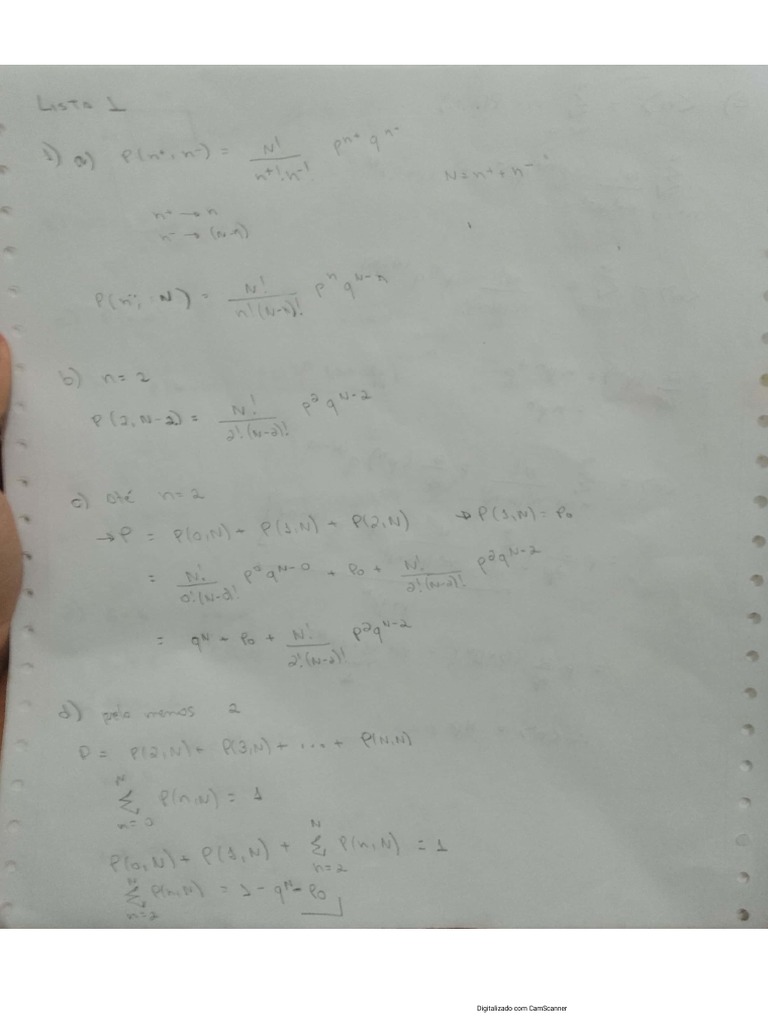 Lista 1
1) a) P(n⁺, n⁻) = N! / n⁺! n⁻! p^n⁺ q^n⁻
N = n⁺ + n⁻
n⁺ → n
n⁻ → (N-n)
P(n, N) = N! / n!(N-n)! p^n q^N-n
b) n = 2
P(2, N-2) = N! / 2!(N-2)! p² q^N-2
c) até n = 2
→ P = P(0,N) + P(1,N) + P(2,N) → P(1,N) = P0
= N! / 0!(N-2)! q^N-0 + P0 + N! / 2!(N-2)! p² q^N-2
= q^N + P0 + N! / 2!(N-2)! p² q^N-2
d) pelo menos 2
P = P(2,N) + P(3,N) + ... + P(N,N)
N Σ n=0 P(n,N) = 1
P(0,N) + P(1,N) + N Σ n=2 P(n,N) = 1
N Σ n=2 P(n,N) = 1 - q^N - P0
Digitalizado com CamScanner